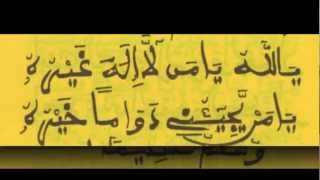 يَا اللَّهُ يَا مَنْ لَا إِلَهَ غَيْرُهُ
يَا مَنْ يَجِيئُنِي دَوَامًا خَيْرُهُ